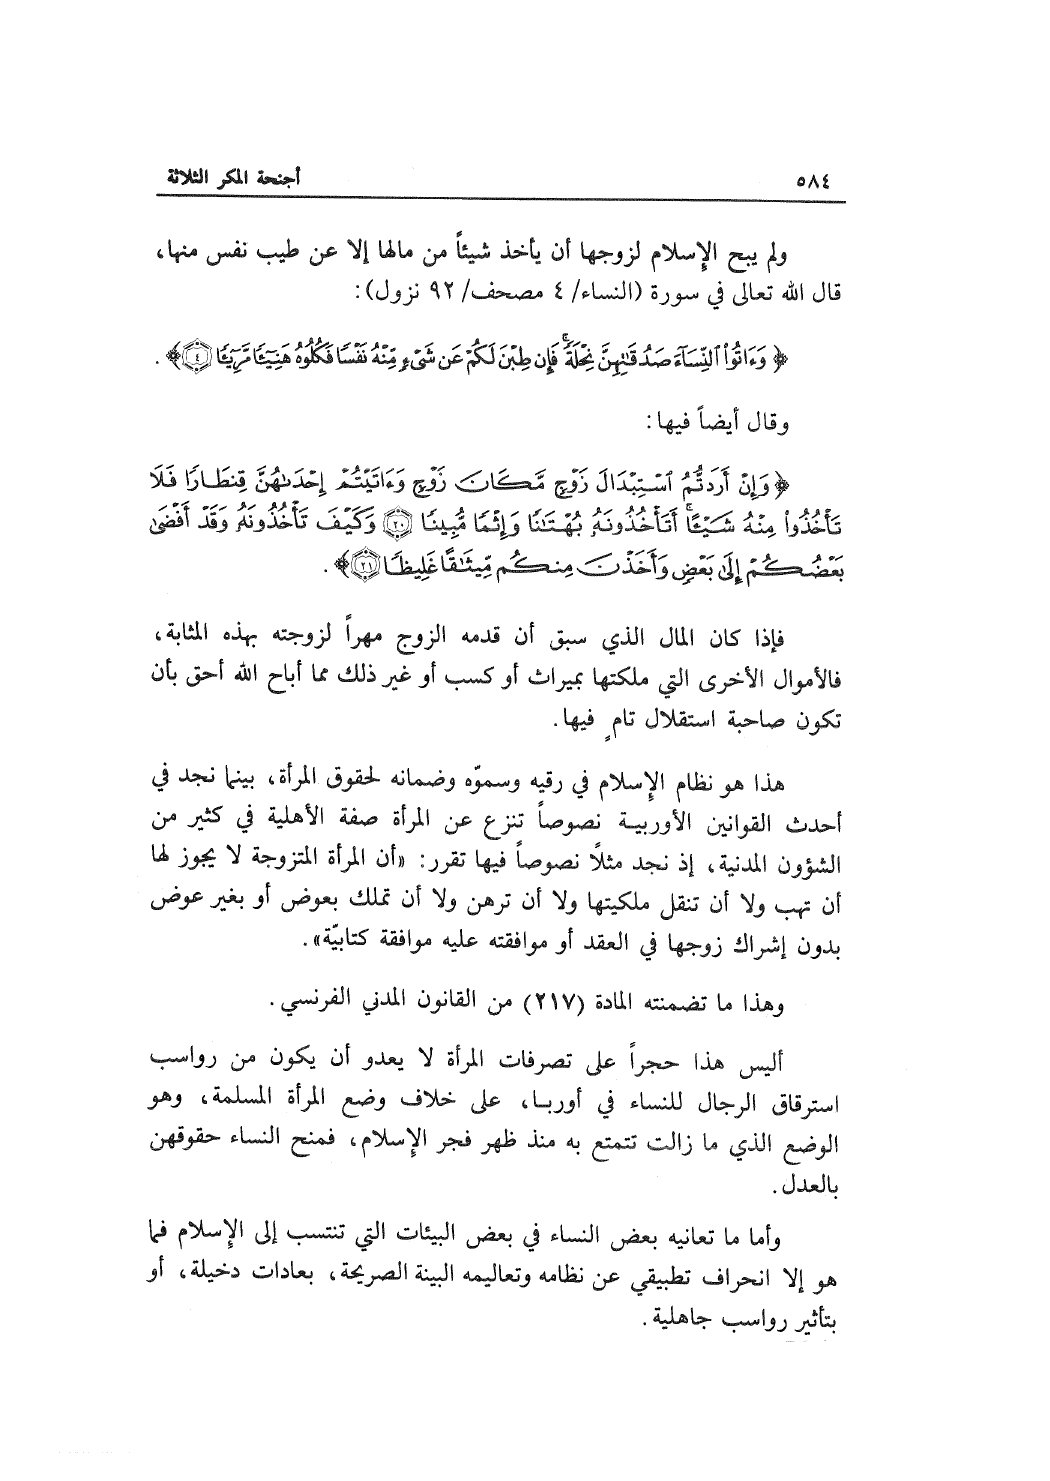 ٥٨٤ أجنحة المكر الثلاثة
ولم يبح الإسلام لزوجها أن يأخذ شيئاً من مالها إلا عن طيب نفس منها،
قال الله تعالى في سورة (النساء/ ٤ مصحف/ ٩٢ نزول):
﴿ وَءَاتُوا۟ ٱلنِّسَآءَ صَدُقَـٰتِهِنَّ نِحْلَةً ۚ فَإِن طِبْنَ لَكُمْ عَن شَىْءٍ مِّنْهُ نَفْسًا فَكُلُوهُ هَنِيٓـًٔا مَّرِيٓـًٔا ﴿٤﴾ ﴾ .
وقال أيضاً فيها:
﴿ وَإِنْ أَرَدتُّمُ ٱسْتِبْدَالَ زَوْجٍ مَّكَانَ زَوْجٍ وَءَاتَيْتُمْ إِحْدَىٰهُنَّ قِنطَارًا فَلَا
تَأْخُذُوا۟ مِنْهُ شَيْـًٔا ۚ أَتَأْخُذُونَهُۥ بُهْتَـٰنًا وَإِثْمًا مُّبِينًا ﴿٢٠﴾ وَكَيْفَ تَأْخُذُونَهُۥ وَقَدْ أَفْضَىٰ
بَعْضُكُمْ إِلَىٰ بَعْضٍ وَأَخَذْنَ مِنكُم مِّيثَـٰقًا غَلِيظًا ﴿٢١﴾ ﴾ .
فإذا كان المال الذي سبق أن قدمه الزوج مهراً لزوجته بهذه المثابة،
فالأموال الأخرى التي ملكتها بميراث أو كسب أو غير ذلك مما أباح الله أحق بأن
تكون صاحبة استقلال تامٍ فيها.
هذا هو نظام الإسلام في رقيه وسموّه وضمانه لحقوق المرأة، بينما نجد في
أحدث القوانين الأوربية نصوصاً تنزع عن المرأة صفة الأهلية في كثير من
الشؤون المدنية، إذ نجد مثلاً نصوصاً فيها تقرر: «أن المرأة المتزوجة لا يجوز لها
أن تهب ولا أن تنقل ملكيتها ولا أن ترهن ولا أن تملك بعوض أو بغير عوض
بدون إشراك زوجها في العقد أو موافقته عليه موافقة كتابيّة».
وهذا ما تضمنته المادة (٢١٧) من القانون المدني الفرنسي.
أليس هذا حجراً على تصرفات المرأة لا يعدو أن يكون من رواسب
استرقاق الرجال للنساء في أوربا، على خلاف وضع المرأة المسلمة، وهو
الوضع الذي ما زالت تتمتع به منذ ظهر فجر الإسلام، فمنح النساء حقوقهن
بالعدل.
وأما ما تعانيه بعض النساء في بعض البيئات التي تنتسب إلى الإسلام فما
هو إلا انحراف تطبيقي عن نظامه وتعاليمه البينة الصريحة، بعادات دخيلة، أو
بتأثير رواسب جاهلية.